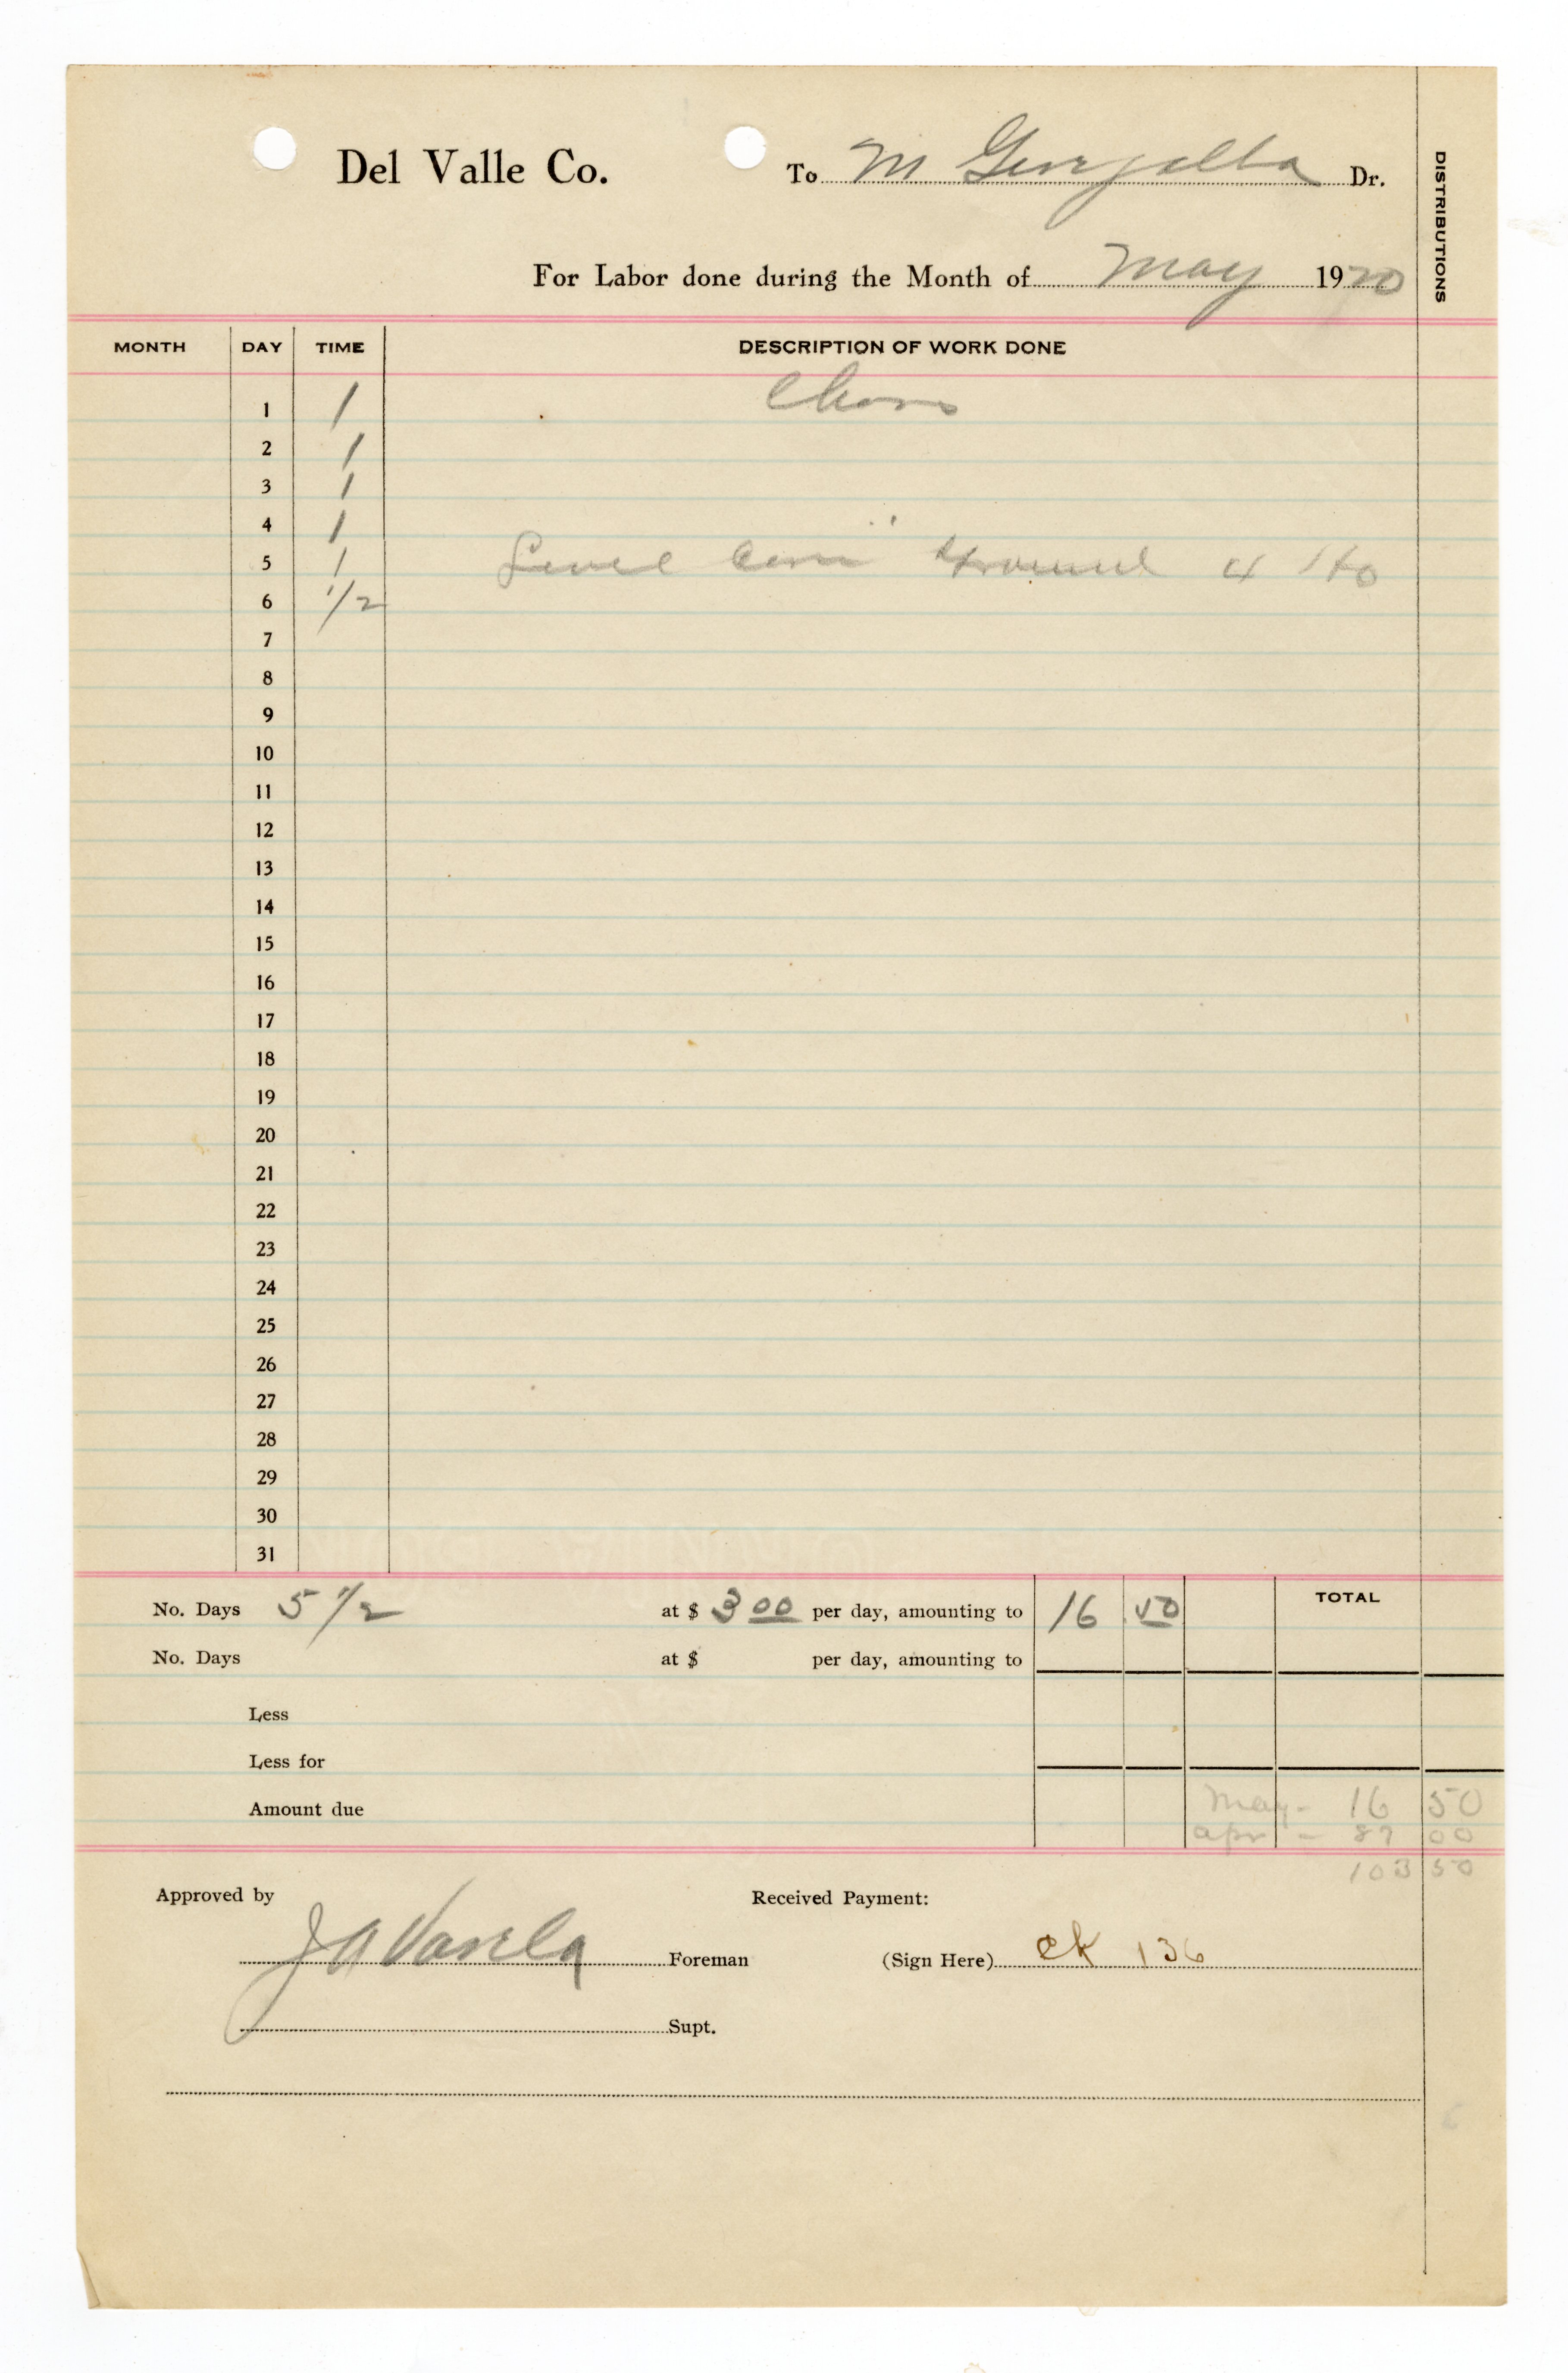 Del Valle Co. To M Dr.
DISTRIBUTIONS
For Labor done during the Month of May 1920
MONTH DAY TIME DESCRIPTION OF WORK DONE
1 1
2 1
3 1
4 1
5 1 Level Corn Ground 4 Ho
6 1/2
7
8
9
10
11
12
13
14
15
16
17
18
19
20
21
22
23
24
25
26
27
28
29
30
31
TOTAL
No. Days 5 1/2 at $ 3 00 per day, amounting to 16 50
No. Days at $ per day, amounting to
Less
Less for
Amount due May - 16 50
apr - 87 00
103 50
Approved by Received Payment:
J A Varela Foreman (Sign Here) ck 136
Supt.